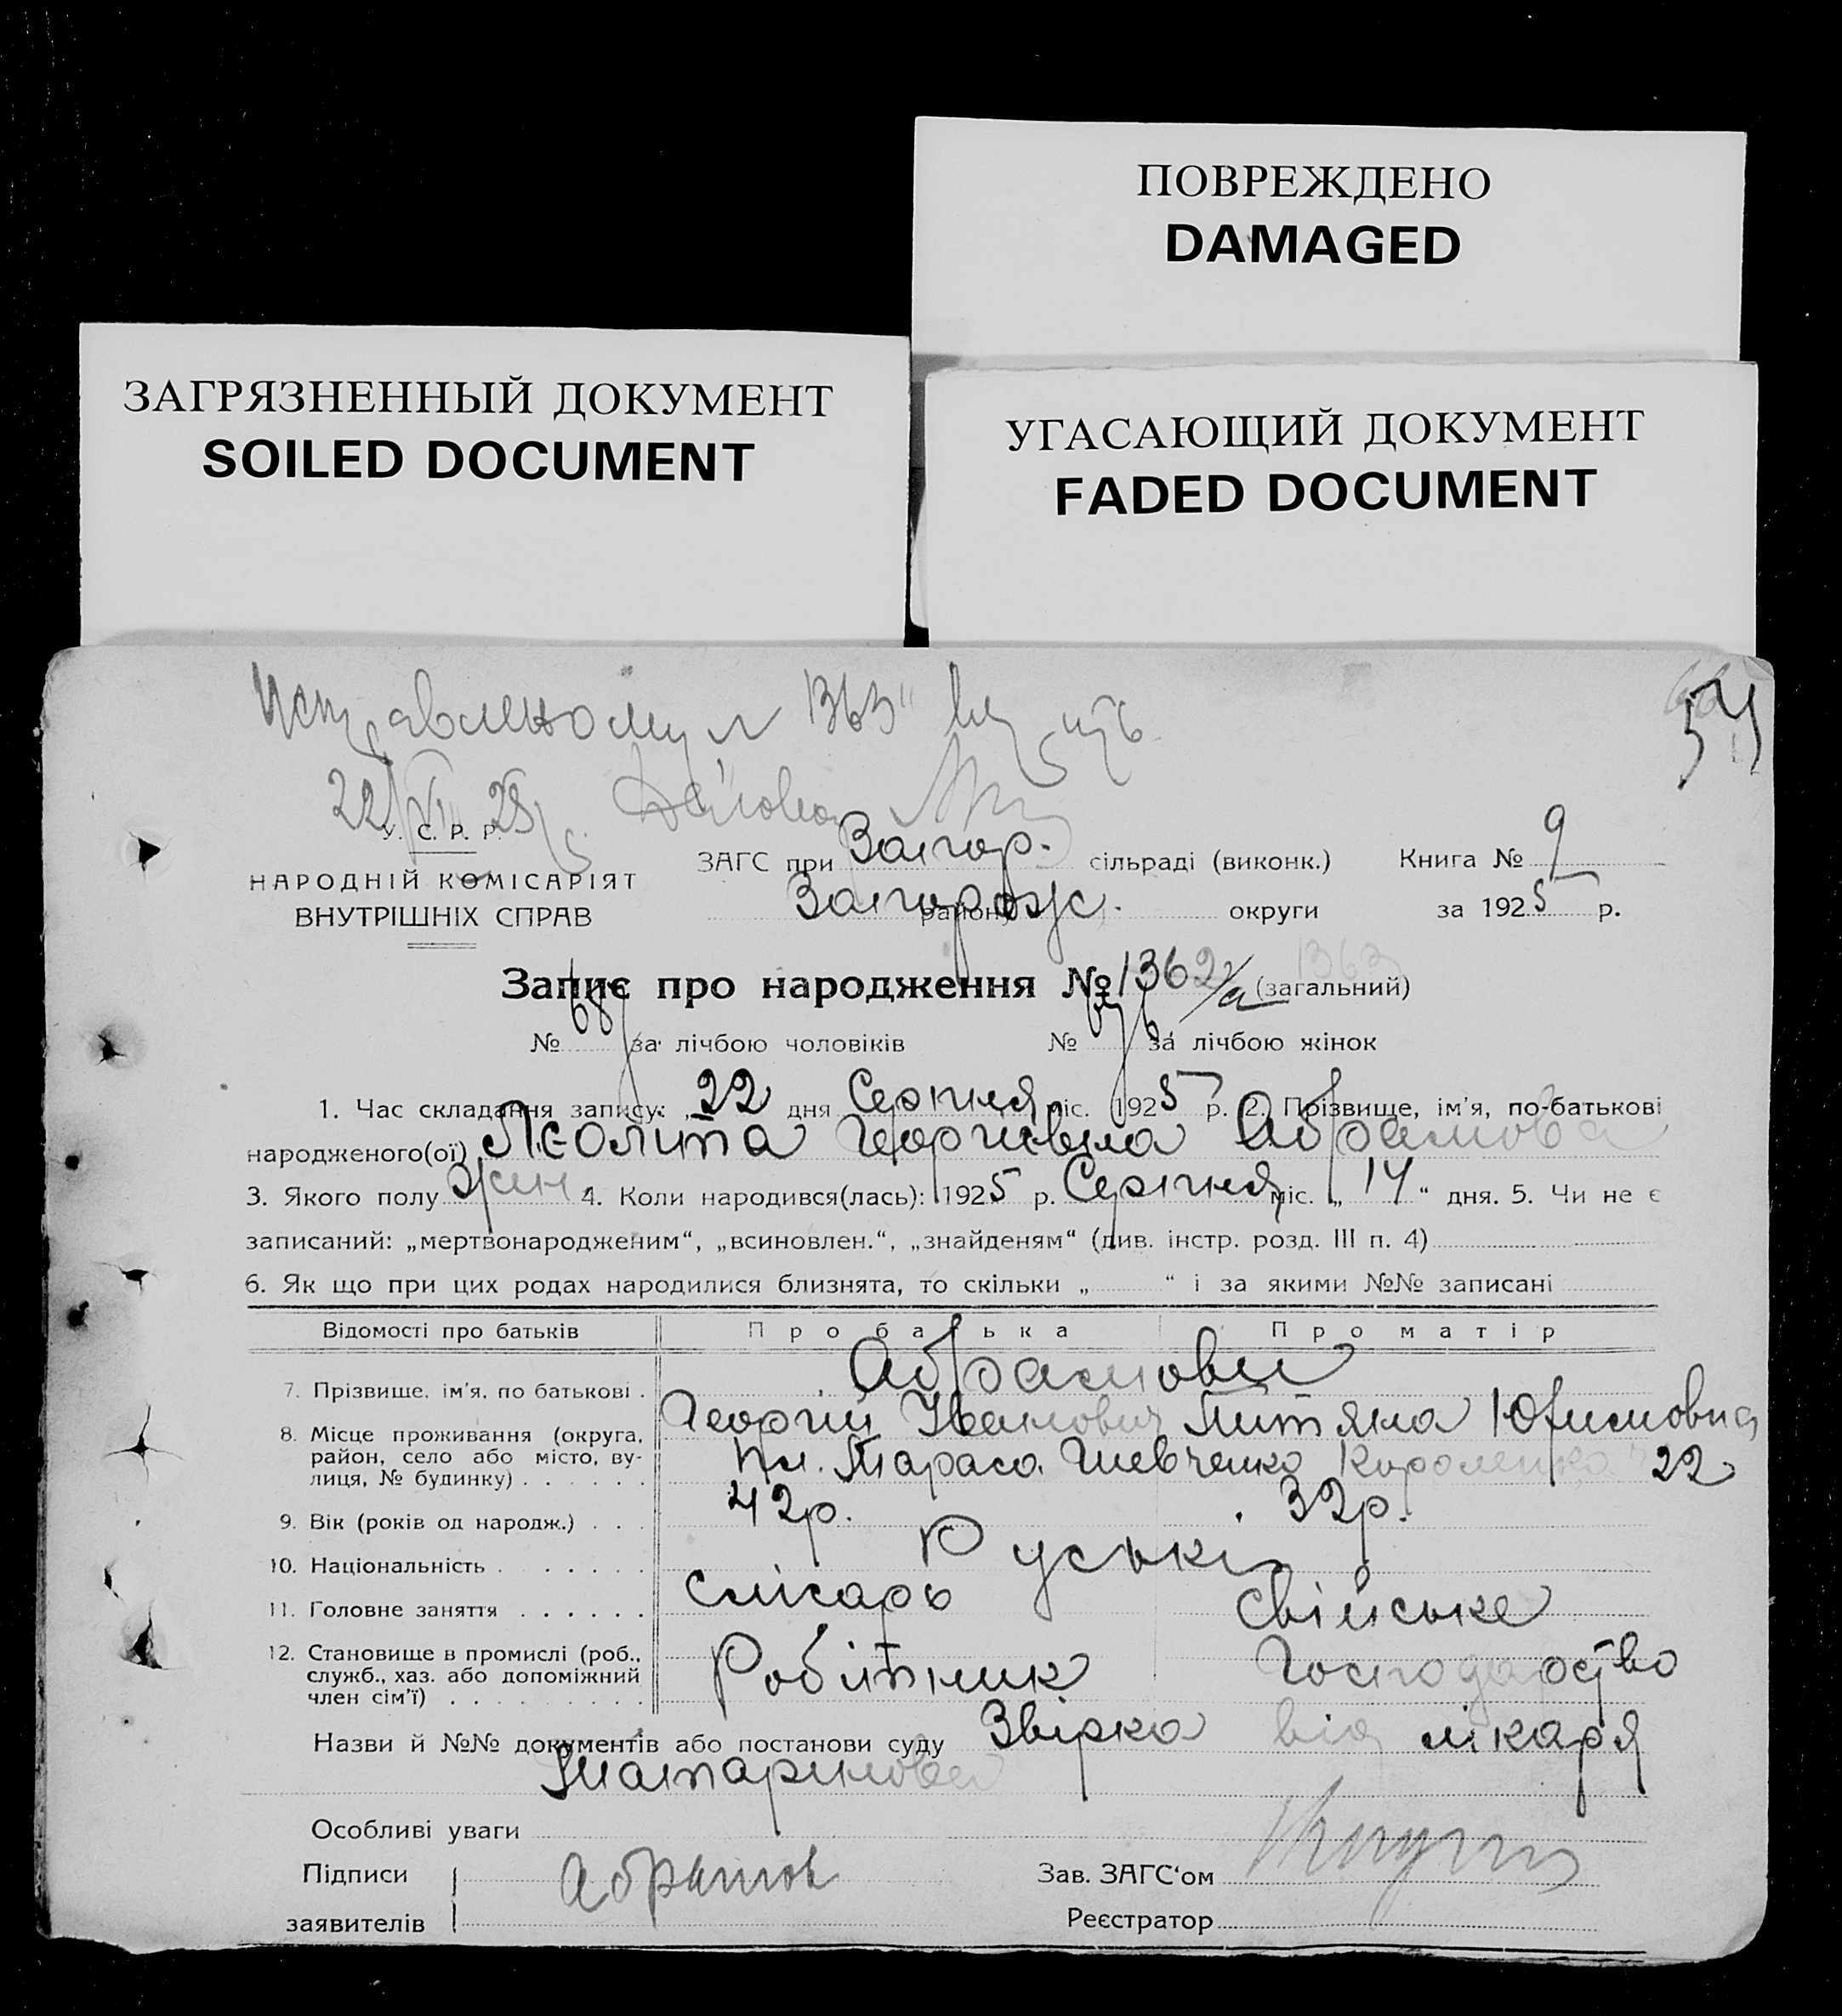 ПОВРЕЖДЕНО
DAMAGED
ЗАГРЯЗНЕННЫЙ ДОКУМЕНТ
SOILED DOCUMENT
УГАСАЮЩИЙ ДОКУМЕНТ
FADED DOCUMENT
Исправленому 1363
54
22/VI 28
У. С. Р. Р.
НАРОДНІЙ КОМІСАРІЯТ
ВНУТРІШНІХ СПРАВ
ЗАГС при Запор. сільраді (виконк.) Книга № 9
Запорожс. району округи за 1925 р.
Запис про народження № 1362/а (загальний) 1363
№ 687 за лічбою чоловіків № 676 за лічбою жінок
1. Час складання запису: „22 дня Серпня міс. 1925 р. 2. Прізвище, ім'я, по-батькові
народженого(ої) Леоліта Георгіївна Абрамова
3. Якого полу жін. 4. Коли народився(лась): 1925 р. Серпня міс. „14“ дня. 5. Чи не є
записаний: „мертвонародженим“, „всиновлен.“, „знайденям“ (див. інстр. розд. III п. 4)
6. Як що при цих родах народилися близнята, то скільки „ “ і за якими №№ записані
Відомості про батьків Про батька Про матір
7. Прізвище, ім'я, по батькові . Абрамови
Георгій Іванович Титяна Юфимовна
8. Місце проживання (округа,
район, село або місто, ву-
лиця, № будинку) . . . . . . Пл. Тараса Шевченко Короленко 22
9. Вік (років од народж.) . . . 42р. 32р.
10. Національність . . . . . . Руські
11. Головне заняття . . . . . . слісарь свійське
12. Становище в промислі (роб.,
служб., хаз. або допоміжний
член сім'ї) . . . . . . . . . Робітник Господарство
Назви й №№ документів або постанови суду Звірка від лікаря
Татаринова
Особливі уваги
Підписи Абрамов Зав. ЗАГС'ом
заявителів Реєстратор